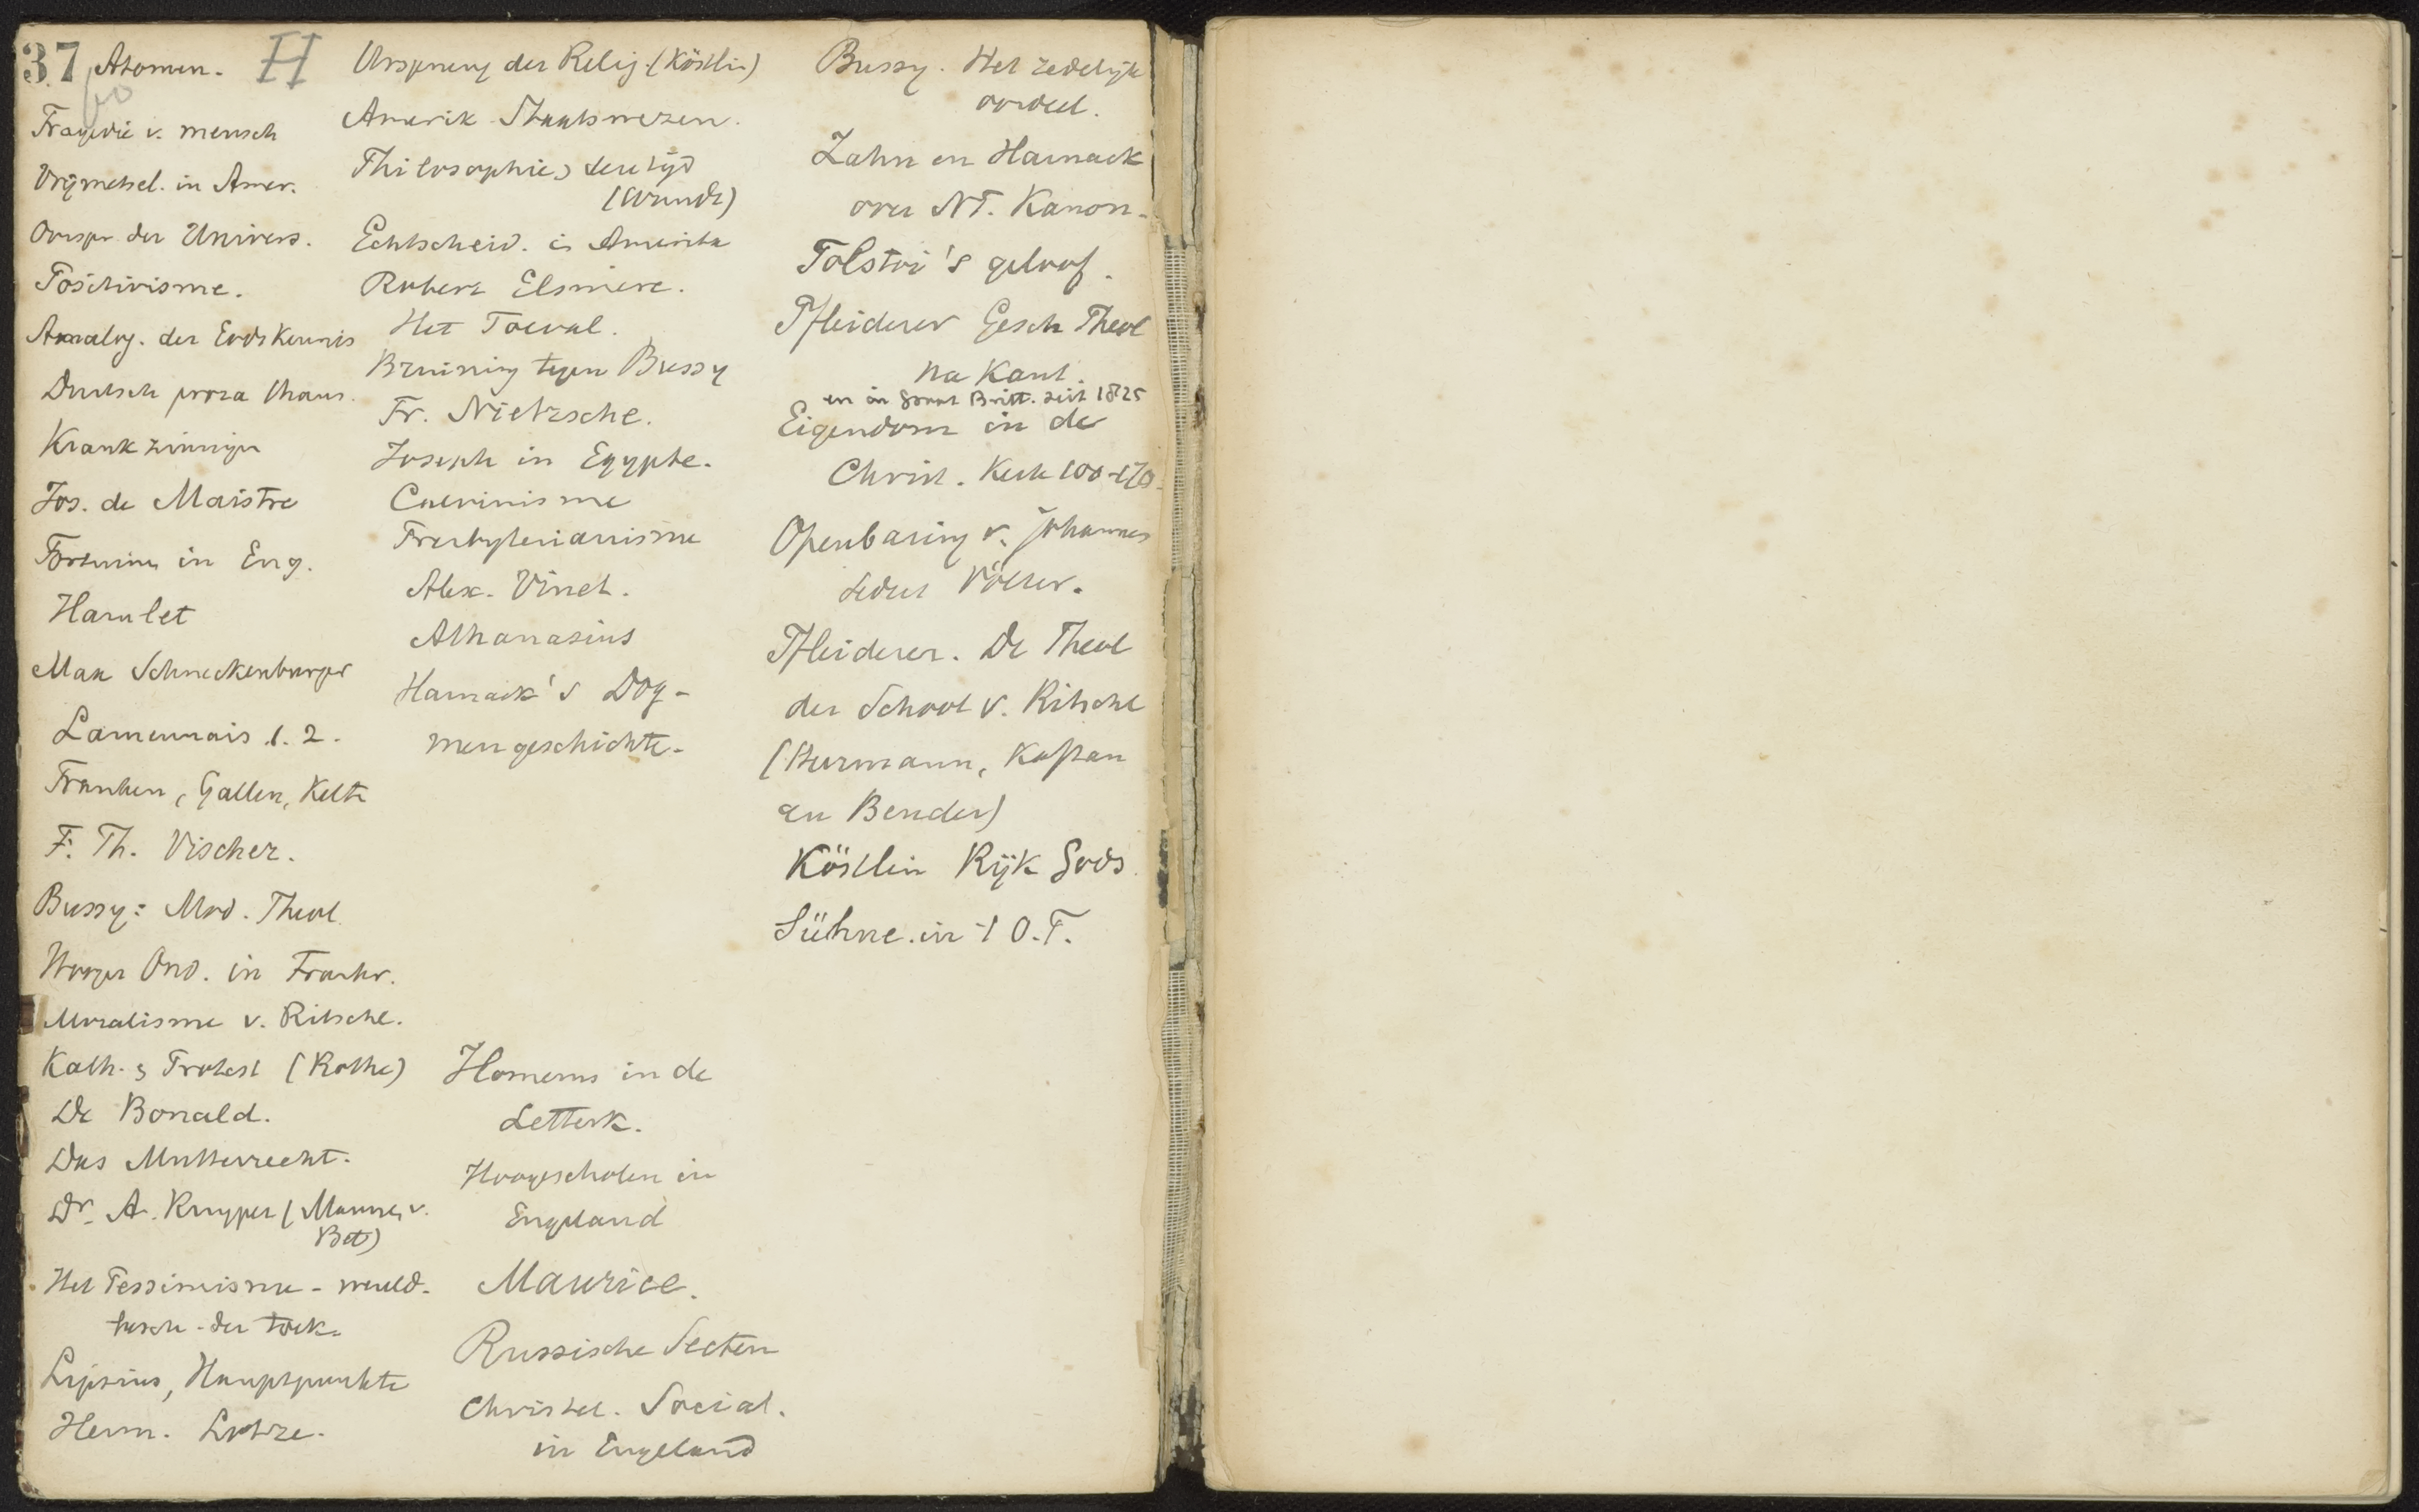 37 Atomen. H
Tragedie v. mensch
Vrijmetsel. in Amer.
Oorspr. der Univers.
Positivisme.
Analog. der Godskennis
Duitsch proza Thans.
Krankzinnigen
Jos. de Maistre
in Eng.
Hamlet
Max Schneckenburger
Lamennais 1. 2.
Franken, Gallen, Kelte
F. Th. Vischer.
Bussy: Mod. Theol.
Hooger Ond. in Frankr.
Moralisme v. Ritschl.
Kath. & Protest (Rothe)
De Bonald.
Das Mutterrecht.
Dr. A. Kuyper (Mannes v. Bet)
Het Pessimisme - wereld-
besch. der toek.
Lipsius, Hauptpunkte
Herm. Lotze.
Ursprung der Relig. (Köstlin)
Amerik. Staatswezen.
Philosophie & tijd
(Wundt)
Echtscheid. in Amerika
Robert Elsmere.
Het Toeval.
Bruining tegen Bussy
Fr. Nietzsche.
Joseph in Egypte.
Calvinisme
Presbyterianisme
Alex. Vinet.
Athanasius
Harnack's Dog-
mengeschichte.
Homerus in de
Letterk.
Hoogescholen in
Engeland
Maurice.
Russische Secten
Christel. Social.
in Engeland
Bussy. Het zedelijk
oordeel.
Zahn en Harnack
over NT. Kanon.
Tolstoi's geloof.
Pfleiderer Gesch Theol
na Kant.
en in Groot Britt. seit 1825
Eigendom in de
Christ. Kerk 100-170.
Openbaring v. Johannes
sedert Völter.
Pfleiderer. De Theol
der School v. Ritschl
(Hermann, Kaftan
en Bender)
Köstlin Rijk Gods.
Sühne in 't O.T.